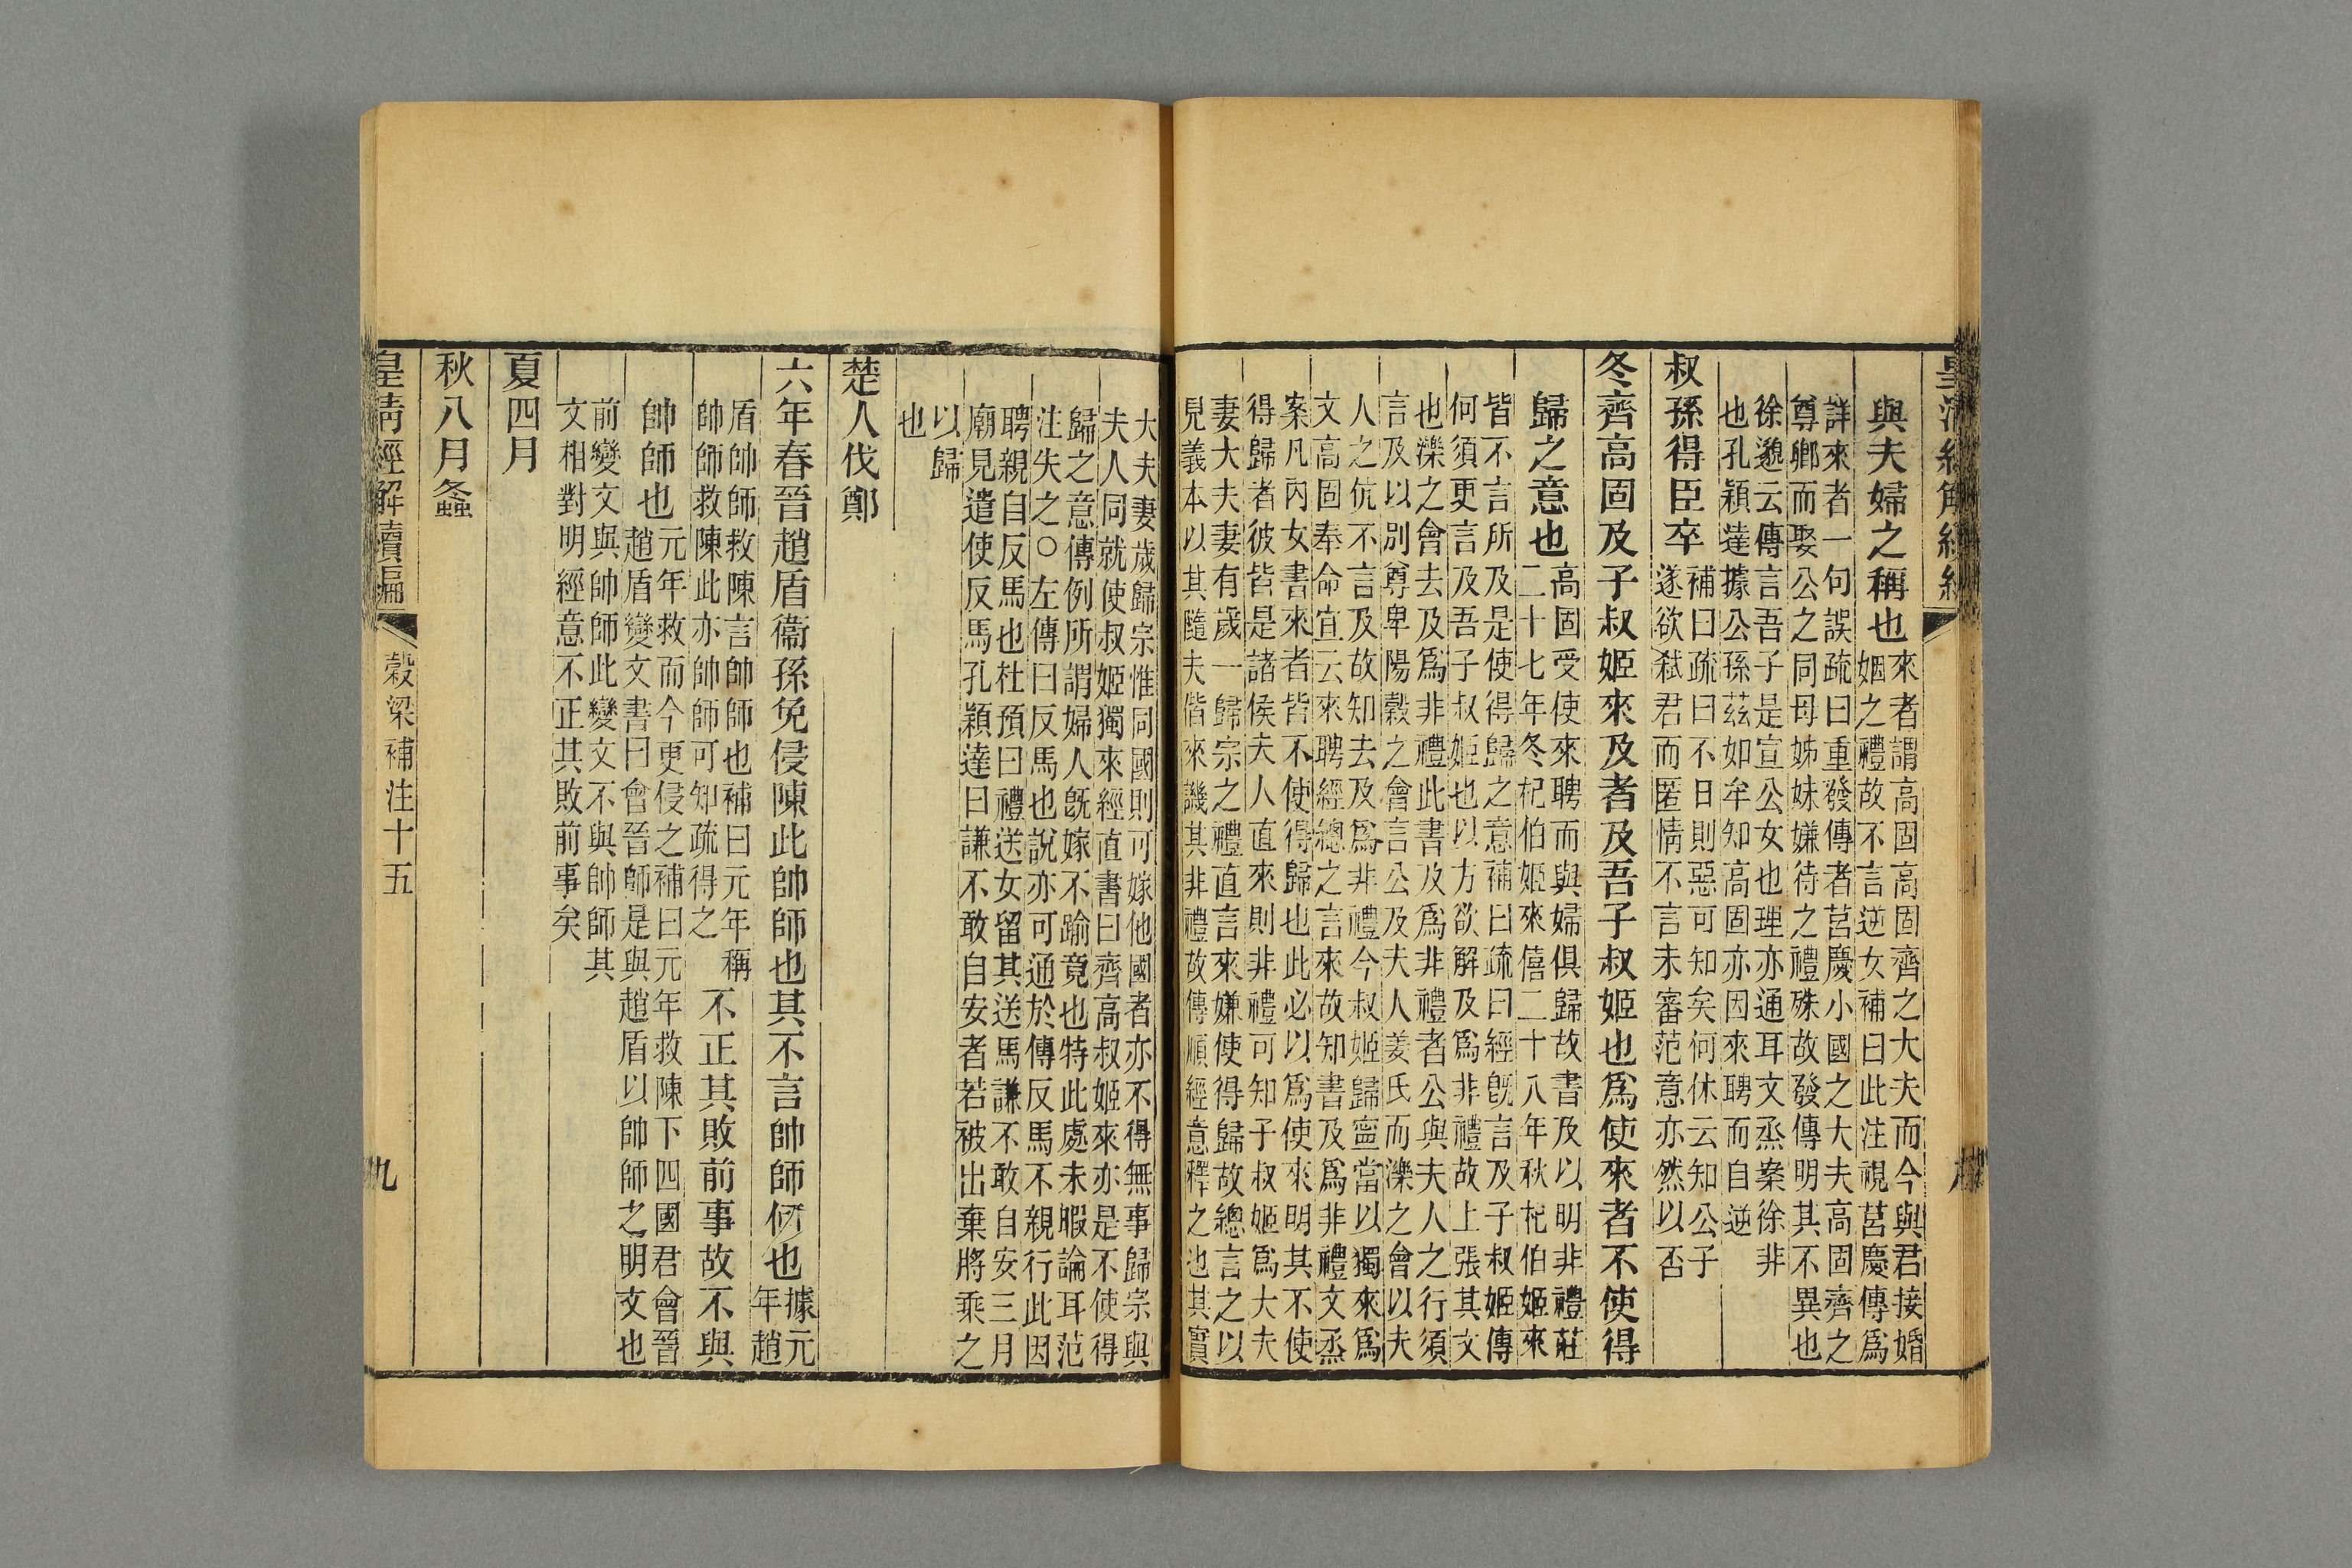 與夫婦之稱也來者謂高固高固齊之大夫而今與君接婚
姻之禮故不言逆女補曰此注視莒慶傳爲
詳來者一句誤疏曰重發傳者莒慶小國之大夫高固齊之
尊鄉而娶公之同母姊妹嫌待之禮殊故發傳明其不異也
徐邈云傳言吾子是宣公女也理亦通耳文烝案徐非
也孔穎達據公孫茲如牟知高固亦因來聘而自逆
叔孫得臣卒補曰疏曰不日則惡可知矣何休云知公子
遂欲弒君而匿情不言未審范意亦然以否
冬齊高固及子叔姬來及者及吾子叔姬也爲使來者不使得
歸之意也高固受使來聘而與婦俱歸故書及以明非禮莊
二十七年冬杞伯姬來僖二十八年秋杞伯姬來
皆不言所及是使得歸之意補曰疏曰經旣言及子叔姬傳
何須更言及吾子叔姬也以方欲解及爲非禮故上張其文
也濼之會去及爲非禮此書及爲非禮者公與夫人之行須
言及以別尊卑陽穀之會言公及夫人姜氏而濼之會以夫
人之伉不言及故知去及爲非禮今叔姬歸寍當以獨來爲
文高固奉命宜云來聘經總之言來故知書及爲非禮文烝
案凡內女書來者皆不使得歸也此必以爲使來明其不使
得歸者彼皆是諸侯夫人直來則非禮可知子叔姬爲大夫
妻大夫妻有歲一歸宗之禮直言來嫌使得歸故總言之以
見義本以其隨夫偕來譏其非禮故傳順經意釋之也其實
大夫妻歲歸宗惟同國則可嫁他國者亦不得無事歸宗與
夫人同就使叔姬獨來經直書曰齊高叔姬來亦是不使得
歸之意傳例所謂婦人旣嫁不踰竟也特此處未暇論耳范
注失之○左傳曰反馬也說亦可通於傳反馬不親行此因
聘親自反馬也杜預曰禮送女留其送馬謙不敢自安三月
廟見遣使反馬孔穎達曰謙不敢自安者若被出棄將乘之
以歸
也
楚人伐鄭
六年春晉趙盾衞孫免侵陳此帥師也其不言帥師何也據元
年趙
盾帥師救陳言帥師也補曰元年稱
帥師救陳此亦帥師可知疏得之不正其敗前事故不與
帥師也元年救而今更侵之補曰元年救陳下四國君會晉
趙盾變文書曰會晉師是與趙盾以帥師之明文也
前變文與帥師此變文不與帥師其
文相對明經意不正其敗前事矣
夏四月
秋八月螽
皇清經解續編 穀梁補注十五
九